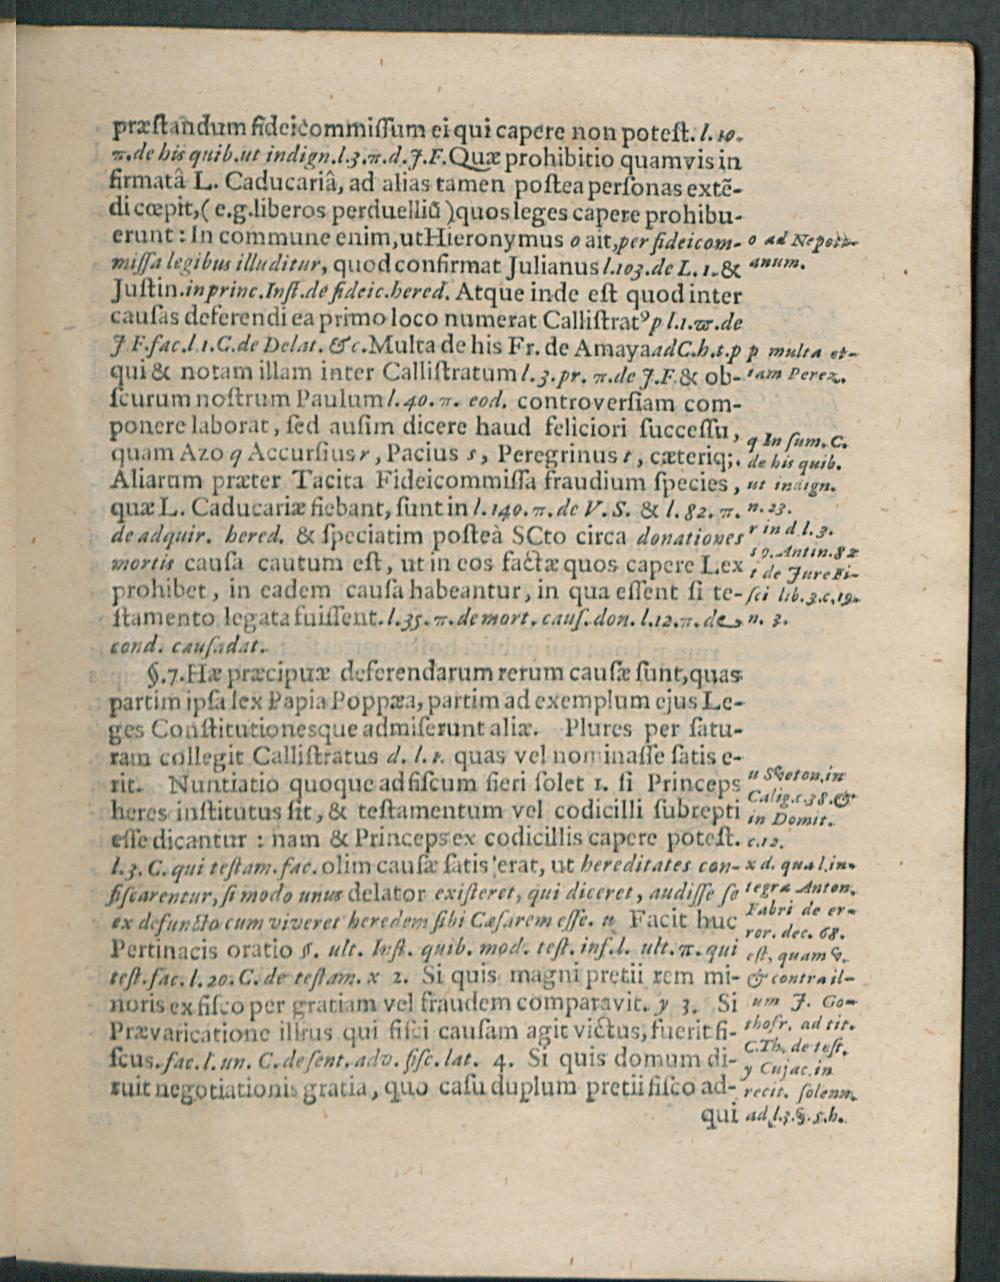 præstandum fideicommissum ei qui capere non potest. l. 10.
π. de his quib. ut indign. l. 3. π. d. J. F. Quæ prohibitio quamvis in
firmatâ L. Caducariâ, ad alias tamen postea personas extẽ-
di cœpit, ( e.g. liberos perduelliū ) quos leges capere prohibu-
erunt : In commune enim, ut Hieronymus o ait, per fideicom-
missa legibus illuditur, quod confirmat Julianus l. 103. de L. 1. &
Justin. in princ. Inst. de fideic. hered. Atque inde est quod inter
causas deferendi ea primo loco numerat Callistratꝰ p l. 1. π. de
J F. fac. l. 1. C. de Delat. &c. Multa de his Fr. de Amaya ad C. h. t. p
qui & notam illam inter Callistratum l. 3. pr. π. de J. F. & ob-
scurum nostrum Paulum l. 40. π. eod. controversiam com-
ponere laborat, sed ausim dicere haud feliciori successu,
quam Azo q Accursius r, Pacius s, Peregrinus t, cæteriq;.
Aliarum præter Tacita Fideicommissa fraudium species,
quæ L. Caducariæ fiebant, sunt in l. 140. π. de V. S. & l. 82. π.
de adquir. hered. & speciatim posteà SCto circa donationes
mortis causa cautum est, ut in eos factæ quos capere Lex
prohibet, in eadem causa habeantur, in qua essent si te-
stamento legata fuissent. l. 35. π. de mort. caus. don. l. 12. π. de
cond. causa dat.
§. 7. Hæ præcipuæ deferendarum rerum causæ sunt, quas
partim ipsa lex Papia Poppæa, partim ad exemplum ejus Le-
ges Constitutionesque admiserunt aliæ. Plures per satu-
ram collegit Callistratus d. l. 1. quas vel nominasse satis e-
rit. Nuntiatio quoque ad fiscum fieri solet 1. si Princeps
heres institutus sit, & testamentum vel codicilli subrepti
esse dicantur : nam & Princeps ex codicillis capere potest.
l. 3. C. qui testam. fac. olim causæ satis erat, ut hereditates con-
fiscarentur, si modo unus delator existeret, qui diceret, audisse se
ex defuncto cum viveret heredem sibi Cæsarem esse. u Facit huc
Pertinacis oratio §. ult. Inst. quib. mod. test. inf. l. ult. π. qui
test. fac. l. 20. C. de testam. x 2. Si quis magni pretii rem mi-
noris ex fisco per gratiam vel fraudem comparavit. y 3. Si
Prævaricatione illius qui fisci causam agit victus, fuerit fi-
scus. fac. l. un. C. de sent. adv. fisc. lat. 4. Si quis domum di-
ruit negotiationis gratia, quo casu duplum pretii fisco ad-
qui
o ad Nepoti-
anum.
p multa et-
iam Perez.
q In sum. C.
de his quib.
ut indign.
n. 23.
r in d l. 3.
s 9. Antin. 82
t de Jure Fi-
sci lib. 3. c. 19.
n. 3.
u Sveton. in
Calig. c. 38. &
in Domit.
c. 12.
x d. qua l. in-
tegra Anton.
Fabri de er-
ror. dec. 68.
est, quamv.
& contra il-
lum J. Go-
thofr. ad tit.
C. Th. de test.
y Cujac. in
recit. solenn.
ad l. 3. §. 5. h.